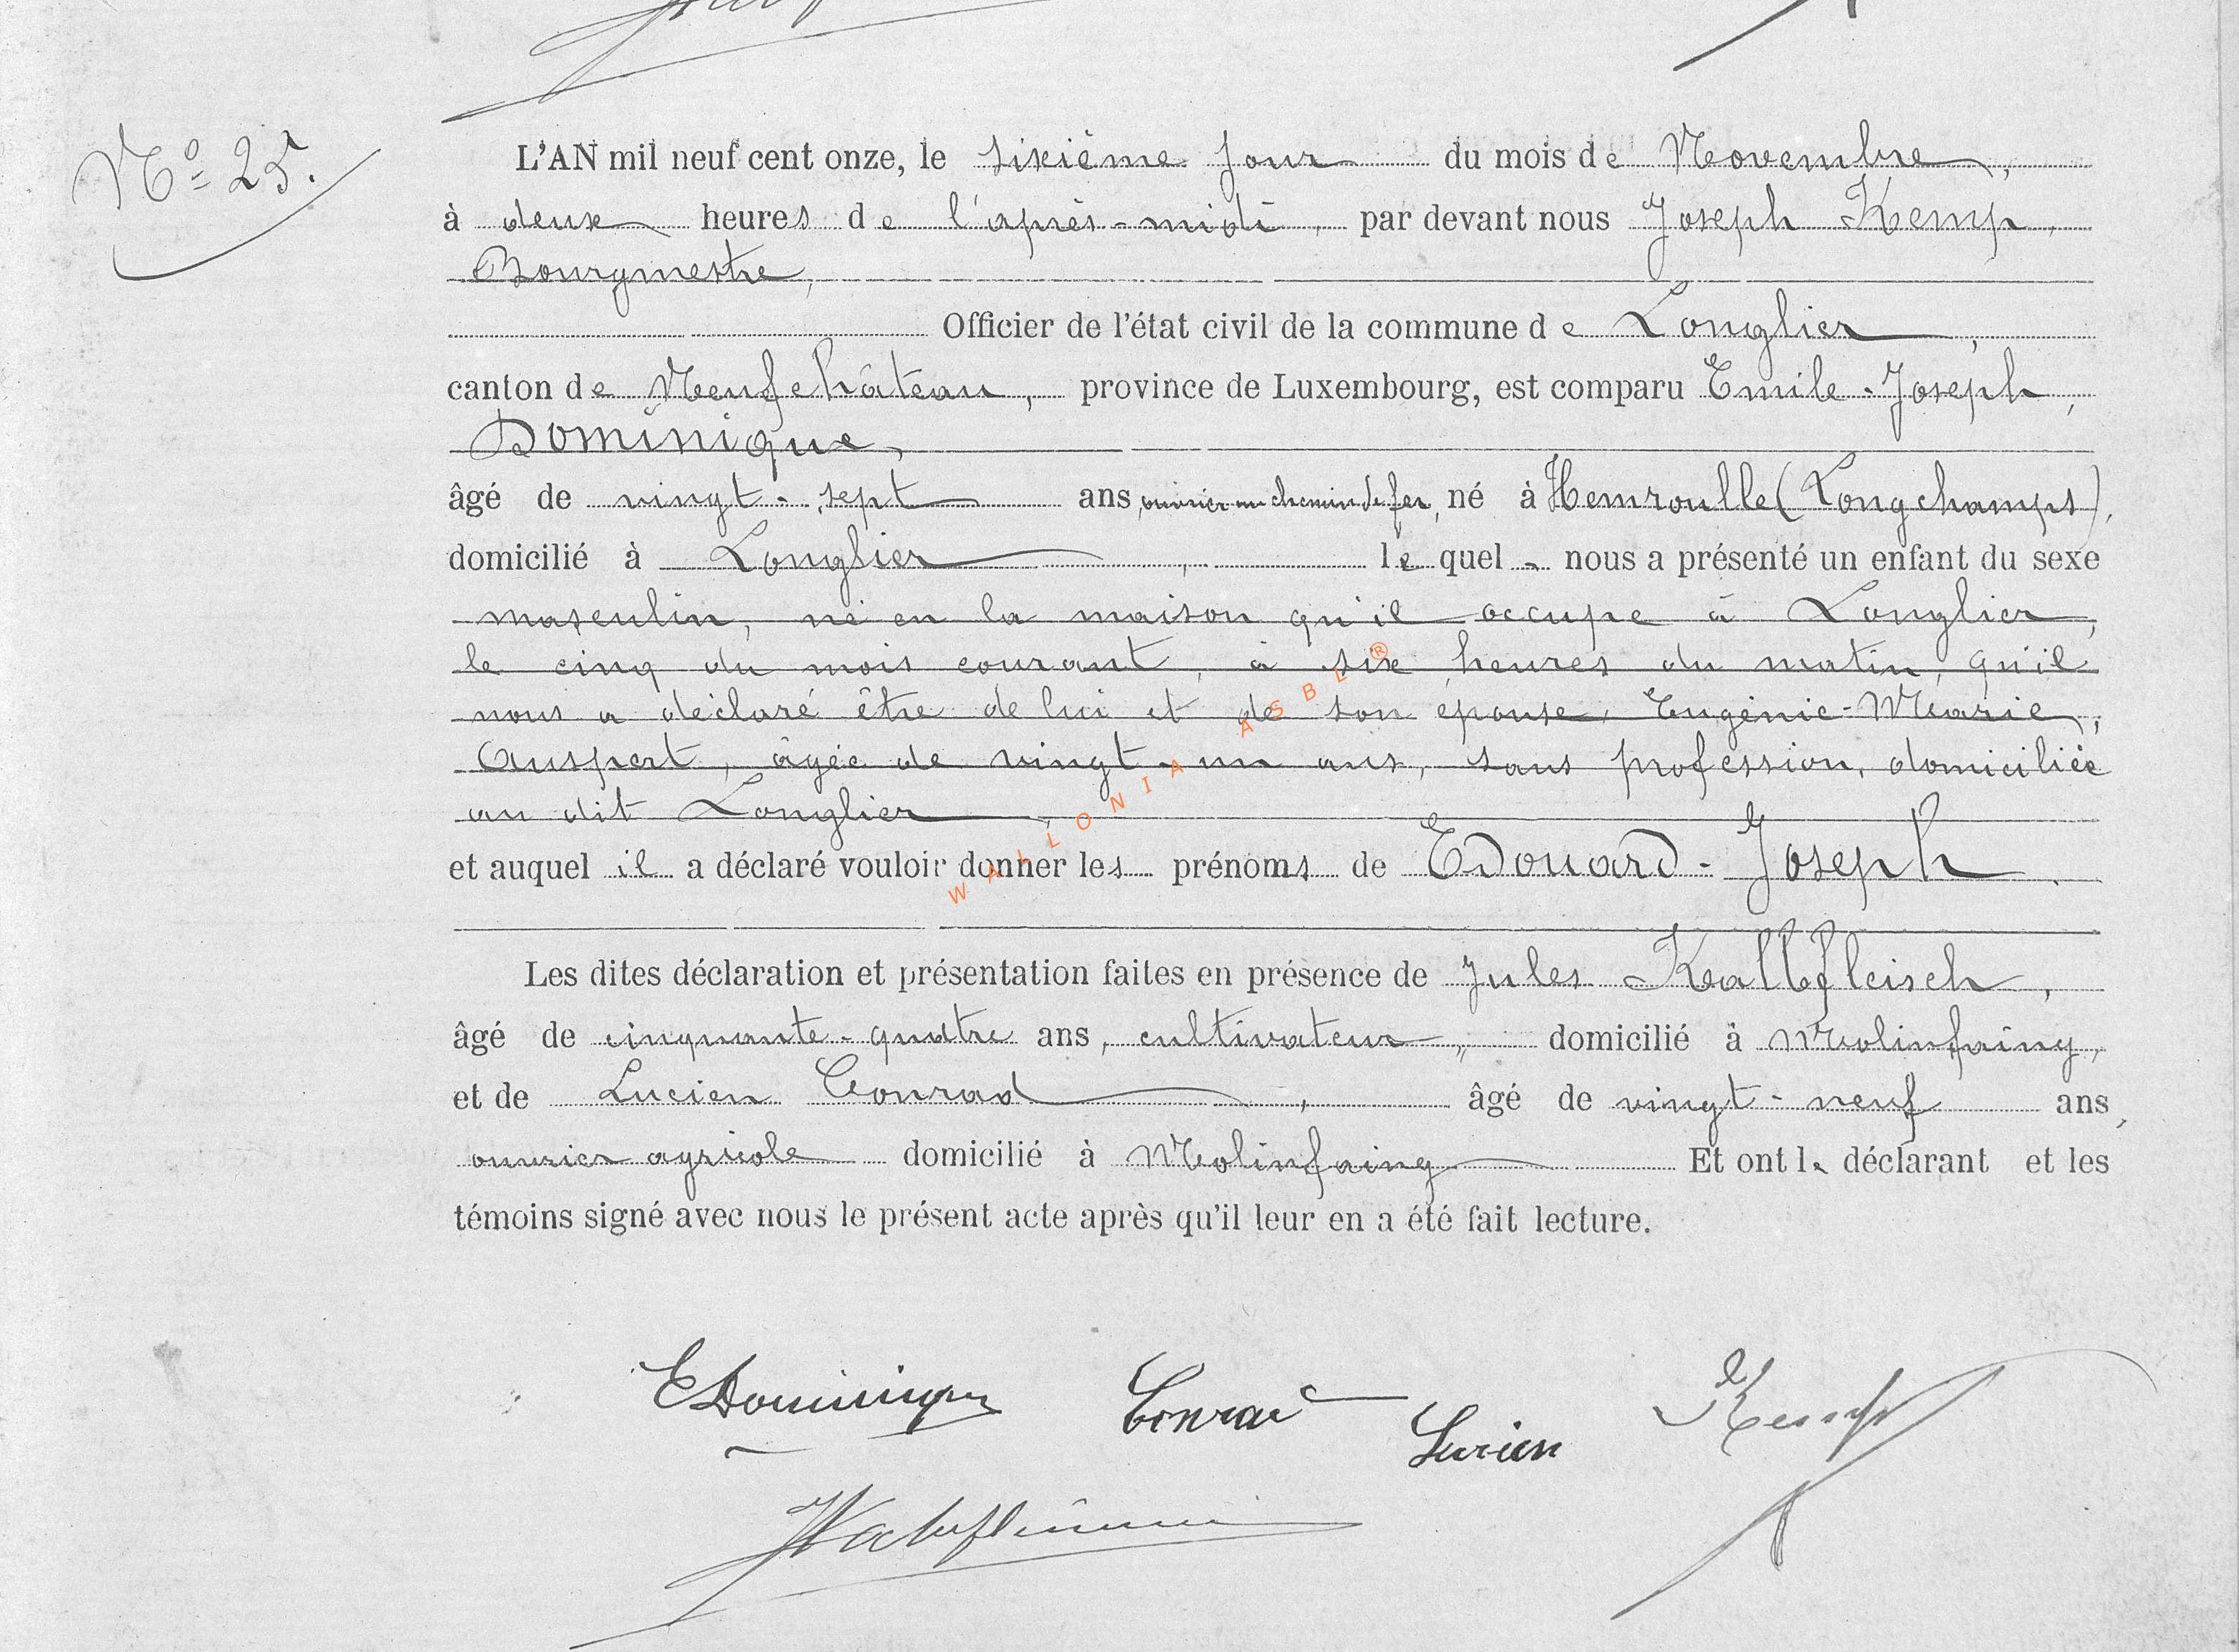 Nº 25.
L'AN mil neuf cent onze, le sixième jour du mois de Novembre,
à deux heures de l'après-midi, par devant nous Joseph Kemp,
Bourgmestre,
Officier de l'état civil de la commune de Longlier,
canton de Neufchâteau, province de Luxembourg, est comparu Emile-Joseph,
Dominique,
âgé de vingt-sept ans, ouvrier au chemin de fer, né à Hemroulle (Longchamps),
domicilié à Longlier, lequel nous a présenté un enfant du sexe
masculin, né en la maison qu'il occupe à Longlier,
le cinq du mois courant, à six heures du matin, qu'il
nous a déclaré être de lui et de son épouse, Eugénie-Marie,
Auspert, âgée de vingt-un ans, sans profession, domiciliée
au dit Longlier,
et auquel il a déclaré vouloir donner les prénoms de Edouard-Joseph.
Les dites déclaration et présentation faites en présence de Jules Kalbfleisch,
âgé de cinquante-quatre ans, cultivateur, domicilié à Molinfaing,
et de Lucien Conrad, âgé de vingt-neuf ans,
ouvrier agricole domicilié à Molinfaing Et ont le déclarant et les
témoins signé avec nous le présent acte après qu'il leur en a été fait lecture.
EDominique Conrad Lucien Kemp
WALLONIA ASBL ®